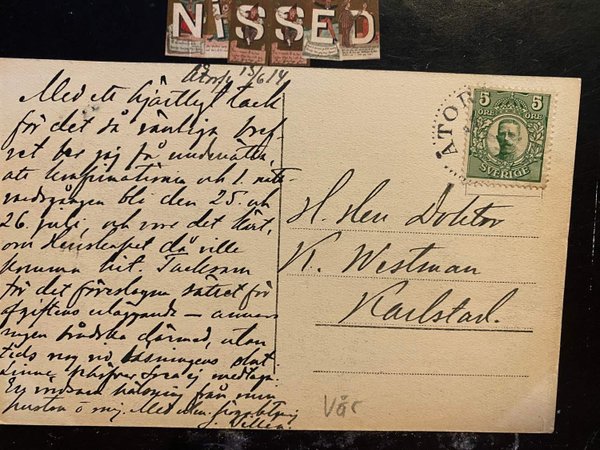 NISSED
Åtorp 15/6 14
Med ett hjärtligt tack
för det så vänliga bref-
vet ber jag få underrätta,
att konfirmationen och 1. natt-
vardsgången bli den 25. och
26. juli, och vore det kärt,
om Herrskapet då ville
komma hit. Tacksam
för det föreslagna sättet för
afgiftens erläggande –
ingen brådska därmed, utan
tids nog vid
En vördsam hälsning från min
hustru o. mig. Med
ÅTOR
5 5
ÖRE ÖRE
SVERIGE
H. Herr Doktor
K. Westman
Karlstad.
Vår